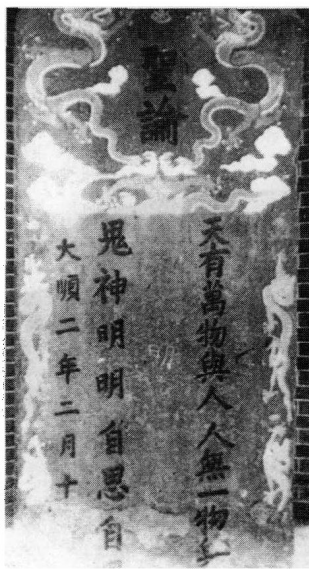 聖諭
天有萬物與人人無一物與
鬼神明明自思自
大順二年二月十